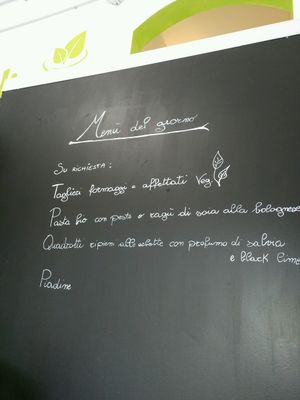 Menù del giorno
Su richiesta:
Taglieri formaggi e affettati Veg
Pasta bio con pesto o ragù di soia alla bolognese
Quadrotti ripieni alle erbette con profumo di salvia
e black lime
Piadine